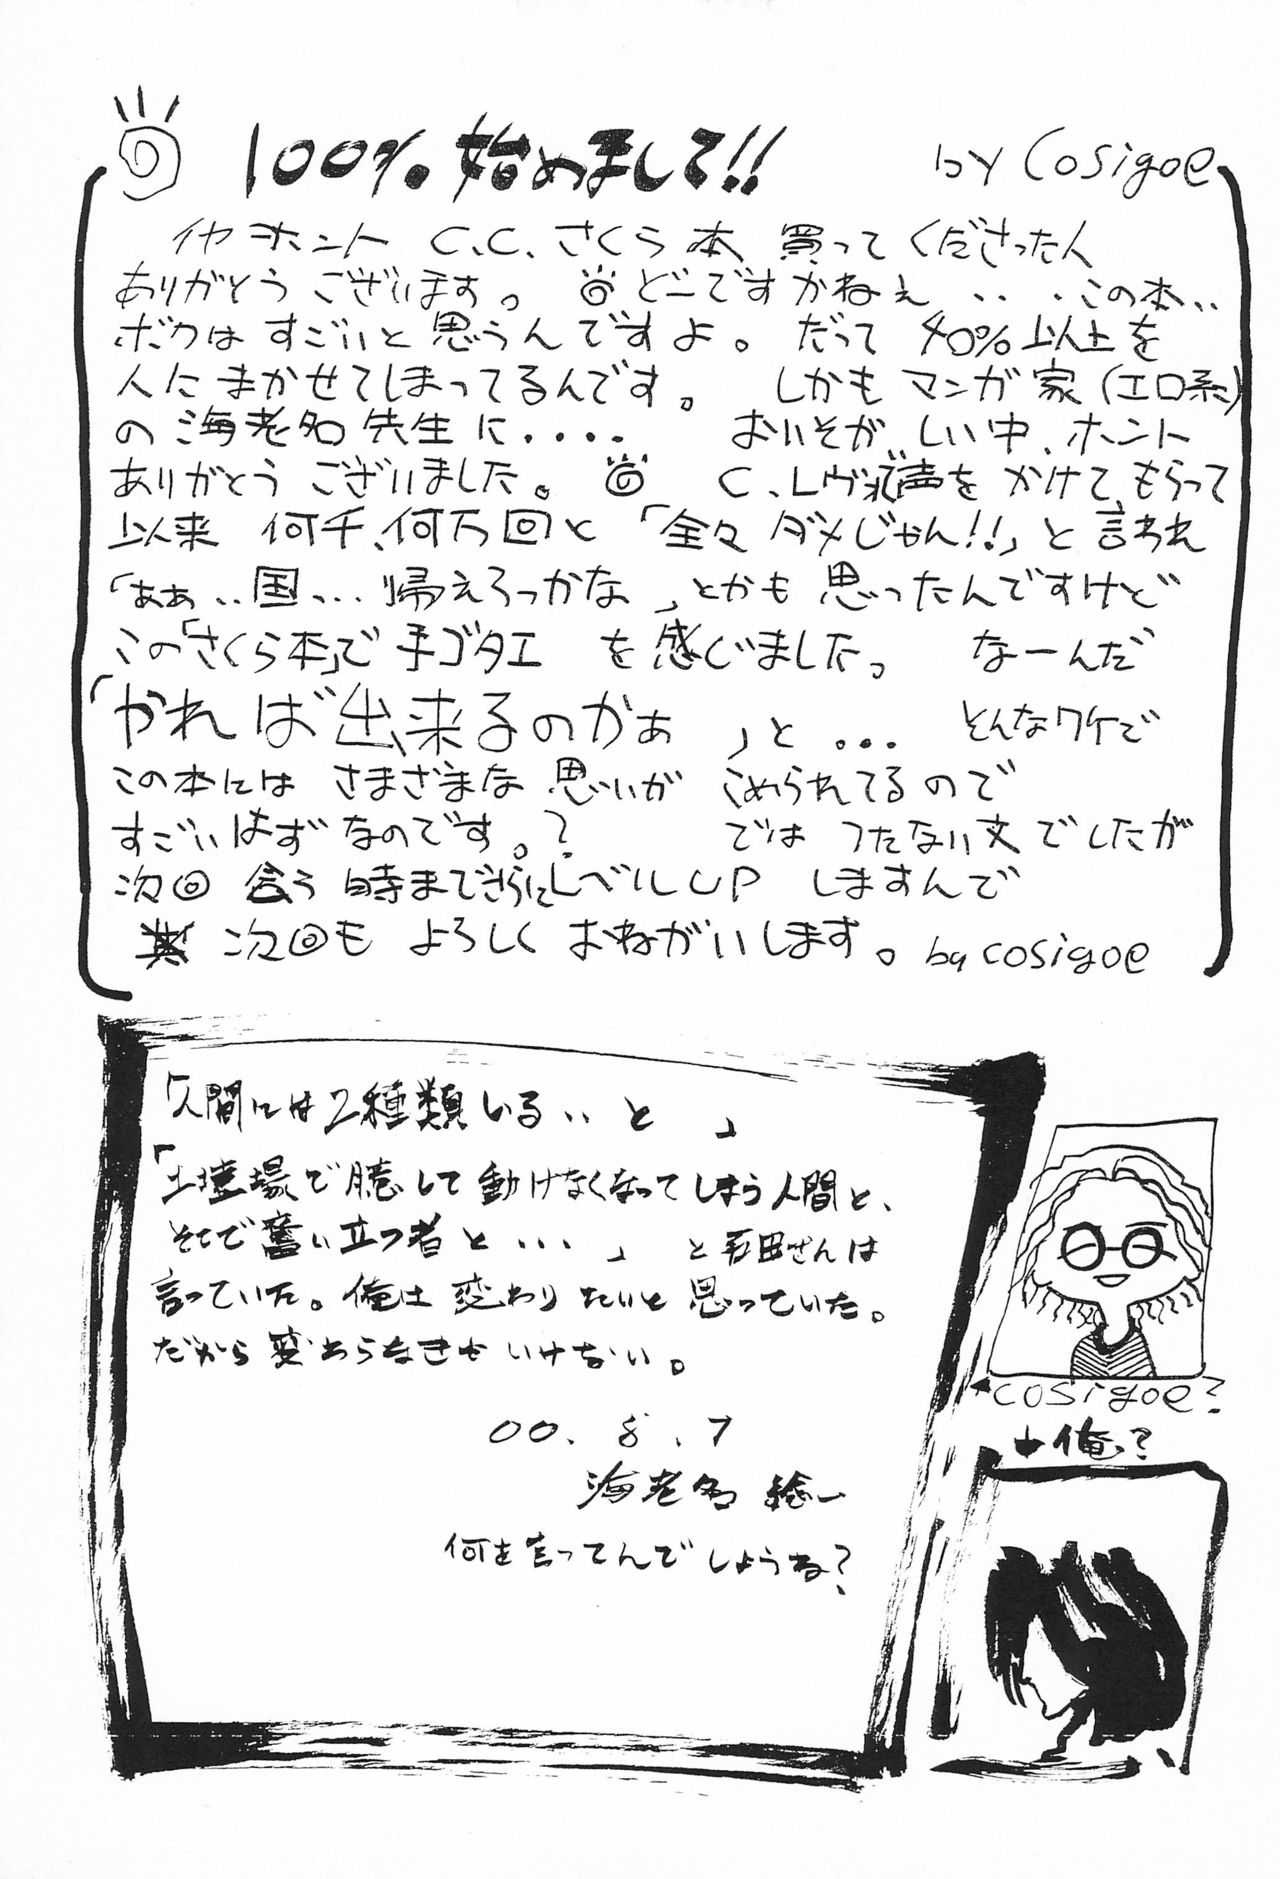 100% 始めまして!! by Cosigoe
イヤ ホント C.C.さくら本 買ってくださった人
ありがとうございます。 どーですかねぇ・・・この本・・
ボクはすごいと思うんですよ。だって 40%以上を
人にまかせてしまってるんです。 しかもマンガ家(エロ系)
の海老名先生に・・・・ おいそがしい中、ホント
ありがとうございました。 C.レヴォで声をかけてもらって
以来 何千、何万回と「全々ダメじゃん!!」と言われ
「ああ・・国・・・帰えろっかな」とかも思ったんですけど
この「さくら本」で手ゴタエ を感じましたっ なーんだ
「やれば出来るのかぁ」と・・・ そんなワケで
この本には さまざまな思いが こめられてるので
すごいはずなのです。? では つたない文でしたが
次回 会う時までさらにレベルUP しますんで
次回も よろしくおねがいします。by cosigoe
「人間には2種類いる・・と」
「土壇場で臆して動けなくなってしまう人間と、
そこで奮い立つ者と・・・」 と石田さんは
言っていた。俺は変わりたいと思っていた。
だから変わらなきゃいけない。
00.8.7
海老名 総一
何を言ってんでしょうね?
cosigoe?
俺っ?